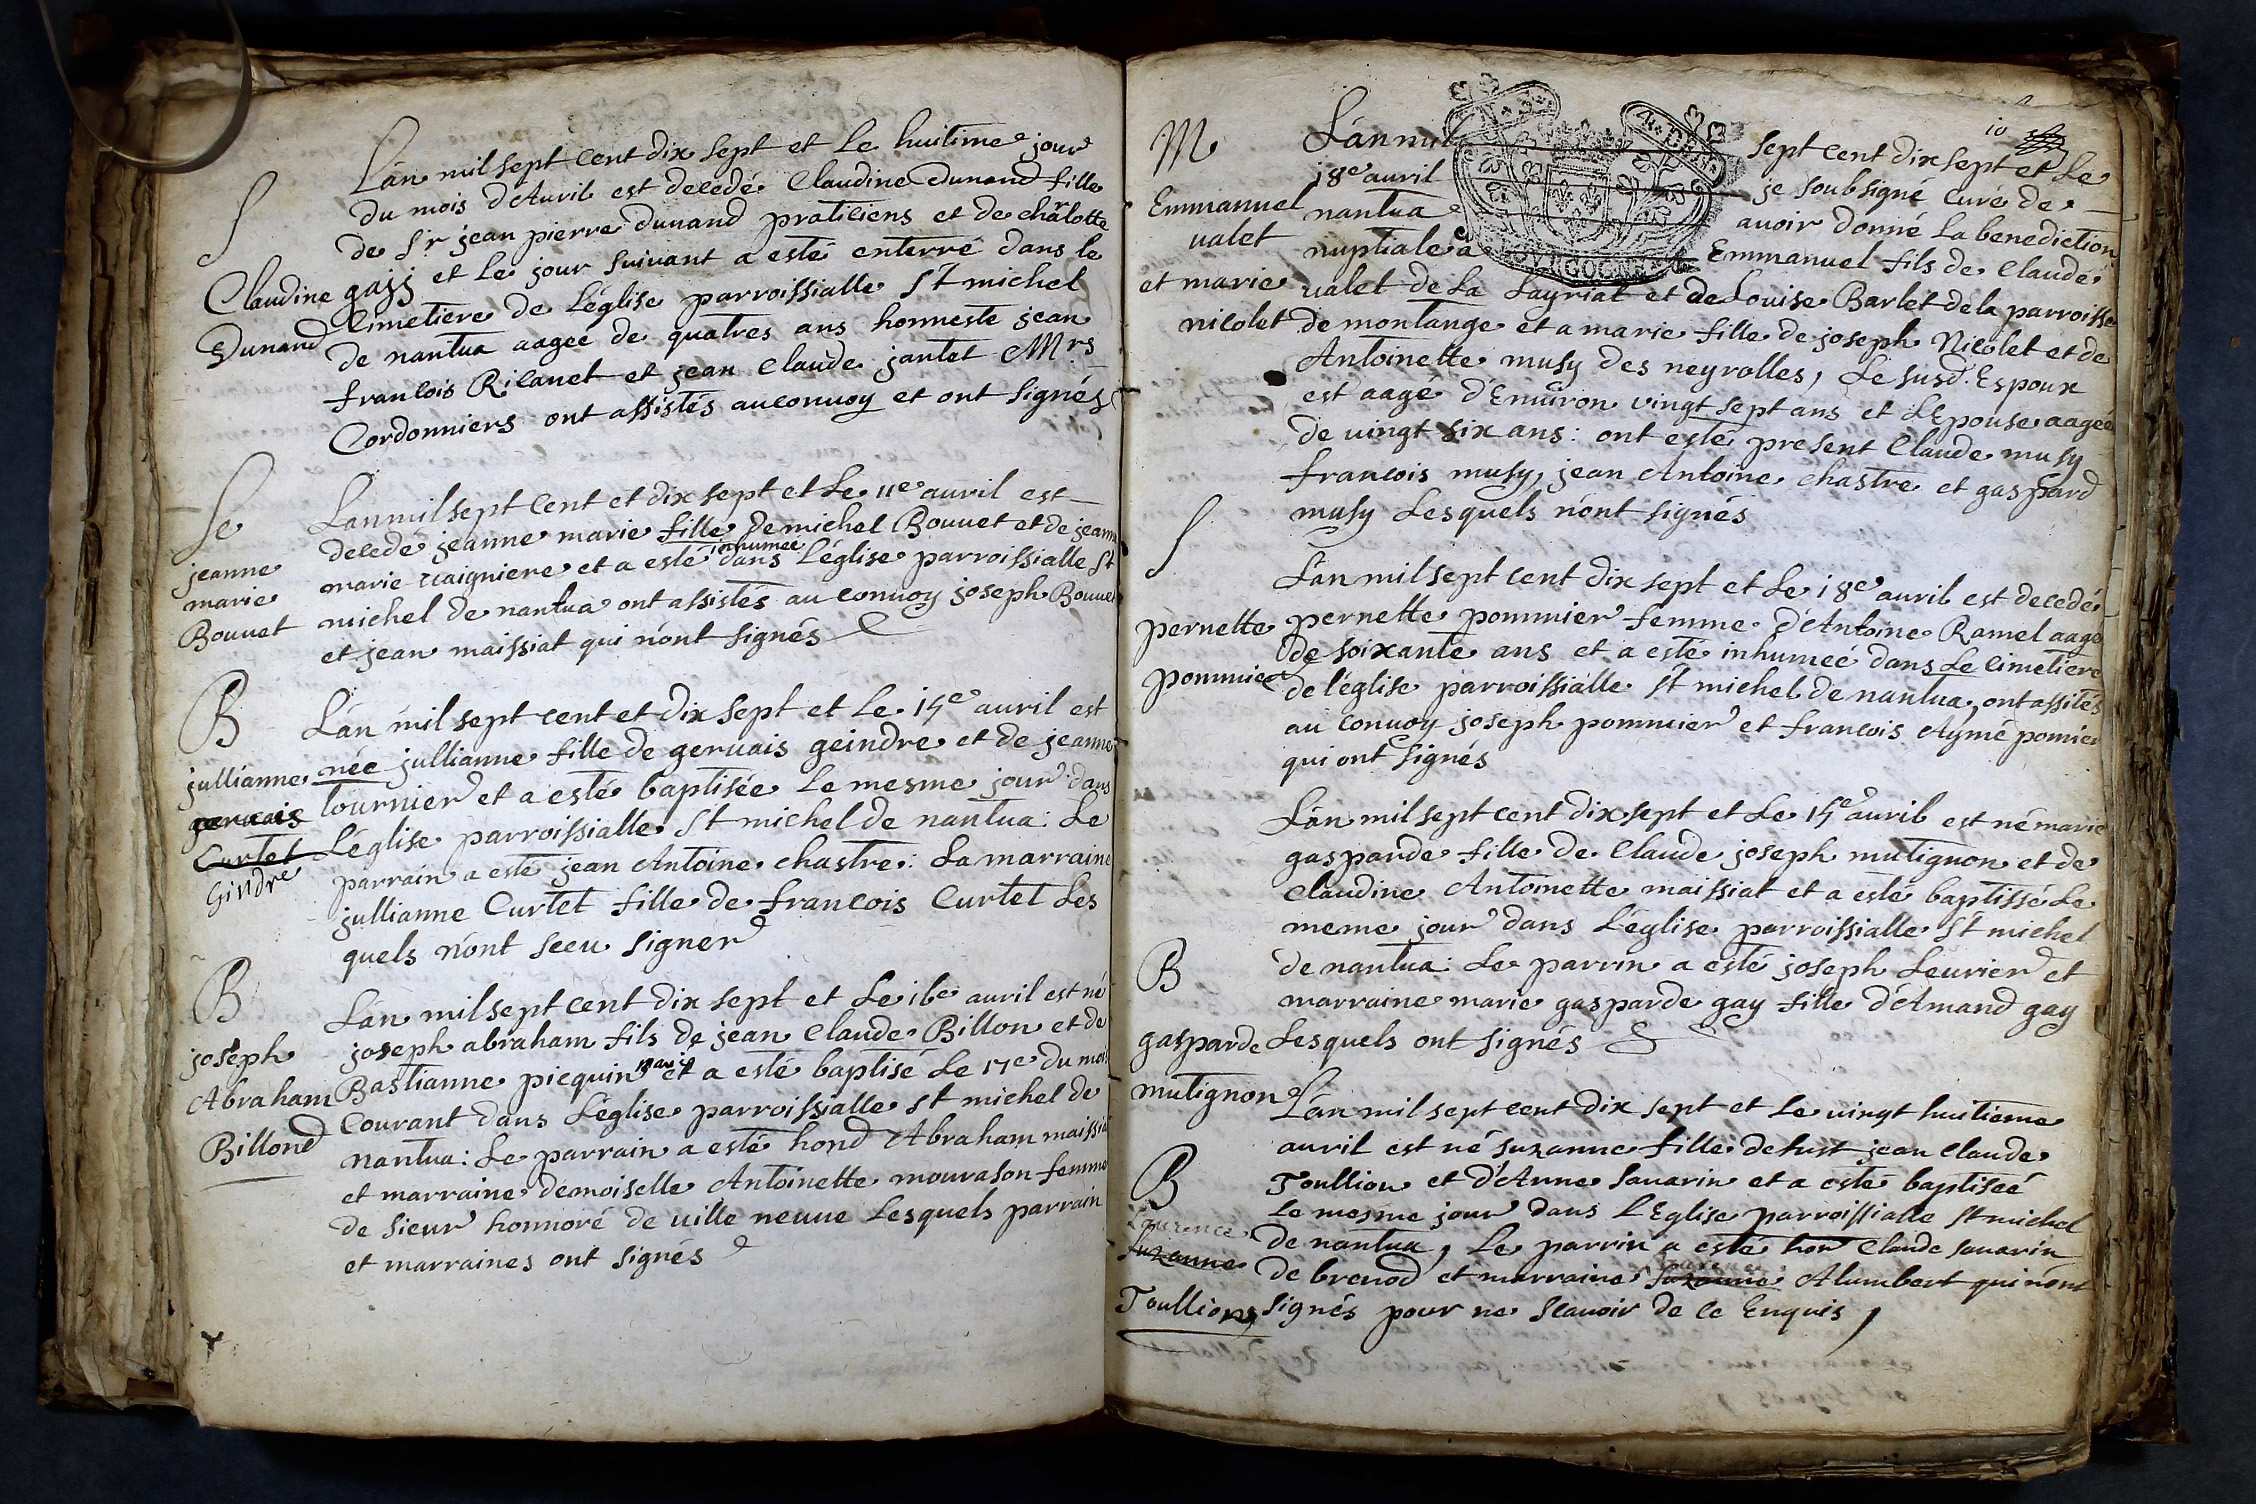 L'an mil sept cent dix sept et le huitime jour
du mois d'Auril est decedé Claudine dunand fille
de Sr jean pierre dunand praticiens et de châlotte
gajj et le jour suiuant a esté enterré dans le
Cimetiere de L'église parroissialle St michel
de nantua aagee de quatres ans honneste jean
francois Rilanet et jean Claude jantet Mrs
Cordonniers ont assistés au conuoy et ont signés
S
Claudine
Dunand
L'an mil sept cent et dix sept et Le 11e auril est
decedé jeanne marie fille de michel Bouuet et de jeanne
inhumee
marie et a esté dans L'église parroissialle St
michel de nantua ont assistés au conuoy joseph Bouuet
et jean maissiat qui n'ont signés
Se
jeanne
marie
Bouuet
L'an mil sept cent et dix sept et Le 15e auril est
née jullianne fille de geruais geindre et de jeanne
tournier et a esté baptisée Le mesme jour dans
L'église parroissialle St michel de nantua: Le
parrain a esté jean Antoine chastre: La marraine
jullianne Curtet fille de francois Curtet Les
quels n'ont sceu signer
B
jullianne
geruais
Curtet
Gindre
L'an mil sept cent dix sept et Le 16e auril est né
joseph abraham fils de jean Claude Billon et de
Bastianne picquin marie et a esté baptisé Le 17e du mois
Courant dans L'église parroissialle St michel de
nantua: Le parrain a esté hond Abraham maissia
et marraine demoiselle Antoinette mourason femme
de sieur honnoré de uille neuue Lesquels parrain
et marraines ont signés
B
joseph
Abraham
Billond
10
L'an mil sept cent dix sept et Le
18e auril je soubsigné Curé de
nantua auoir donné La benediction
nuptiale a Emmanuel fils de Claude
ualet de La Layriat et de Louise Barlet de la parroisse
de montange et a marie fille de joseph Nicolet et de
Antoinette musy des neyrolles, Le susd. Espoux
est aagé d'Enuiron vingt sept ans et L'Epouse aageé
de uingt six ans: ont esté present Claude musy
francois musy, jean Antoine chastre et gaspard
musy Lesquels n'ont signés
M
Emmanuel
ualet
et marie
nicolet
L'an mil sept cent dix sept et Le 18e auril est decedé
pernette pommier femme d'Antoine Ramel aagé
de soixante ans et a esté inhumeé dans Le cimetiere
de l'église parroissialle St michel de nantua, ont assités
au conuoy joseph pommier et francois Aymé pomier
qui ont signés
S
pernette
pommier
L'an mil sept cent dix sept et Le 15e auril est né marie
gasparde fille de Claude joseph mutignon et de
Claudine Antoinette maissiat et a esté baptissé Le
meme jour dans L'église parroissialle St michel
de nantua: Le parrin a esté joseph Leurier et
marraine marie gasparde gay fille d'Amand gay
Lesquels ont signés
B
gasparde
mutignon
L'an mil sept cent dix sept et Le uingt huitieme
auril est né suzanne fille de just jean Claude
Toullion et d'Anne sauarin et a esté baptiseé
Le mesme jour dans L'Eglise parroissialle St michel
de nantua, Le parrin a esté hon Claude sauarin
de brenod et marraine suzanne Alumbert qui n'ont
signés pour ne scauoir de ce Enquis
B
Laurence
suzanne
Toullion